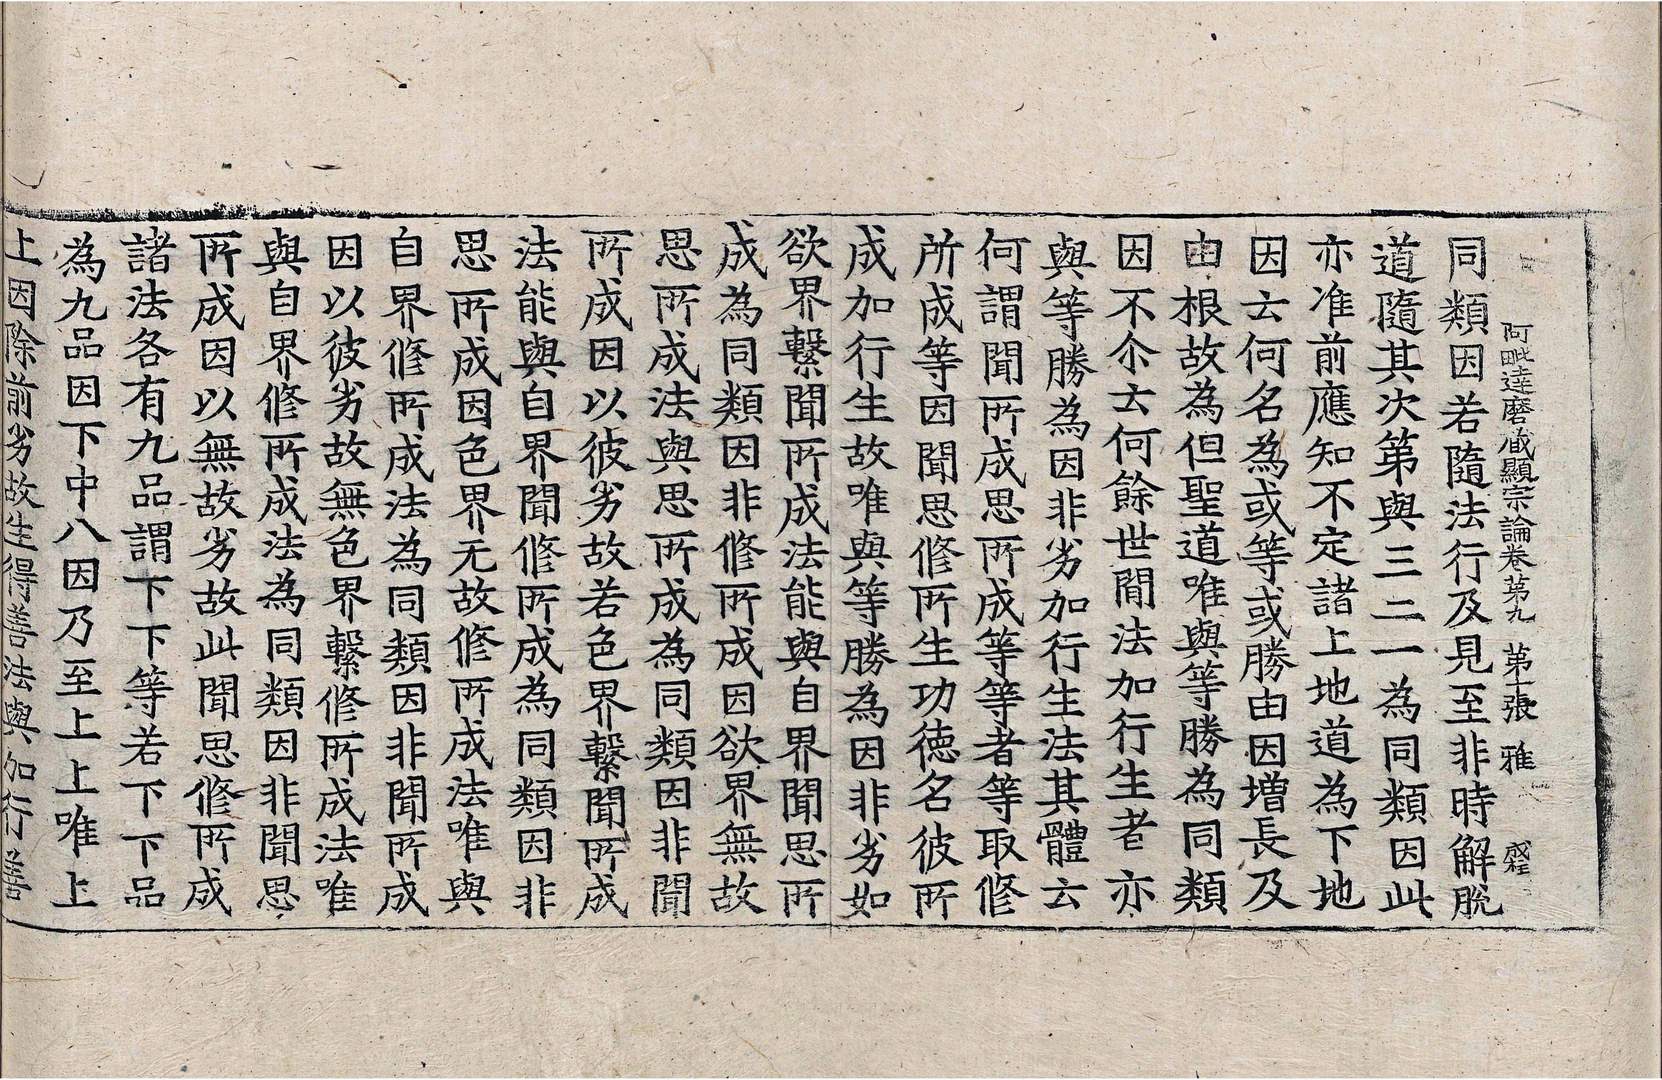 阿毗達磨藏顯宗論卷第九 第二張 雅
同類因若隨法行及見至非時解脫
道隨其次第與三二一為同類因此
亦准前應知不定諸上地道為下地
因云何名為或等或勝由因增長及
由根故為但聖道唯與等勝為同類
因不尒云何餘世間法加行生者亦
與等勝為因非劣加行生法其體云
何謂聞所成思所成等等者等取修
所成等因聞思修所生功德名彼所
成加行生故唯與等勝為因非劣如
欲界繫聞所成法能與自界聞思所
成為同類因非修所成因欲界無故
思所成法與思所成為同類因非聞
所成因以彼劣故若色界繫聞所成
法能與自界聞修所成為同類因非
思所成因色界无故修所成法唯與
自界修所成法為同類因非聞所成
因以彼劣故無色界繫修所成法唯
與自界修所成法為同類因非聞思
所成因以無故劣故此聞思修所成
諸法各有九品謂下下等若下下品
為九品因下中八因乃至上上唯上
上因除前劣故生得善法與加行善